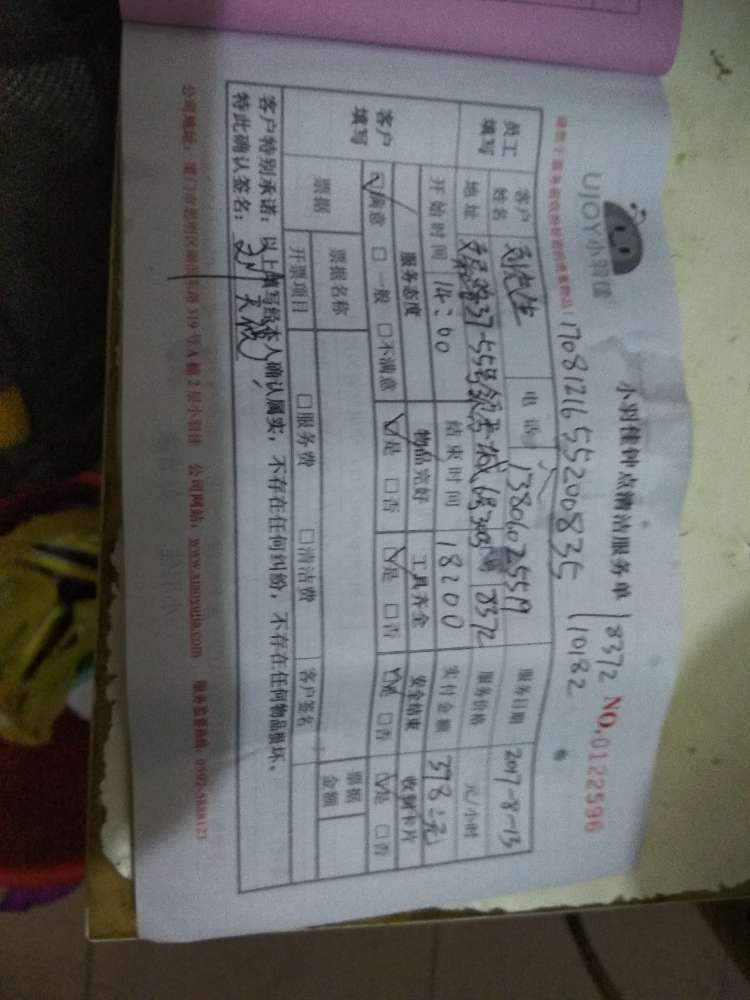 UJOY小羽佳
小羽佳钟点清洁服务单
8372
NO.0122596
1708121655200835
10182
员工填写
客户姓名
电话
13806025519
服务日期
2017-8-13
地址
8372
服务价格
元/小时
开始时间
14:00
结束时间
18:00
实付金额
378元
客户填写
服务态度
物品完好
工具齐全
安全结束
收到卡片
☑满意 □一般 □不满意
☑是 □否
☑是 □否
☑是 □否
☑是 □否
票据
票据名称
票据金额
开票项目
□服务费 □清洁费
客户签名
客户特别承诺：以上填写经本人确认属实，不存在任何纠纷，不存在任何物品损坏。
特此确认签名：
公司地址：厦门市思明区 319号A幢2层小羽佳 公司网站：www.xiaoyujia.com 服务监督热线：0592-5888123